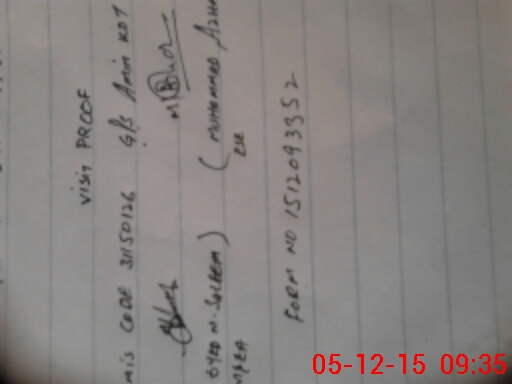 VISIT PROOF
MIS CODE 31150126 G/S Amin KOT
SYED M. SALEEM) (MUHAMMAD AZHA
ESE
FORM NO 1512093352
05-12-15 09:35